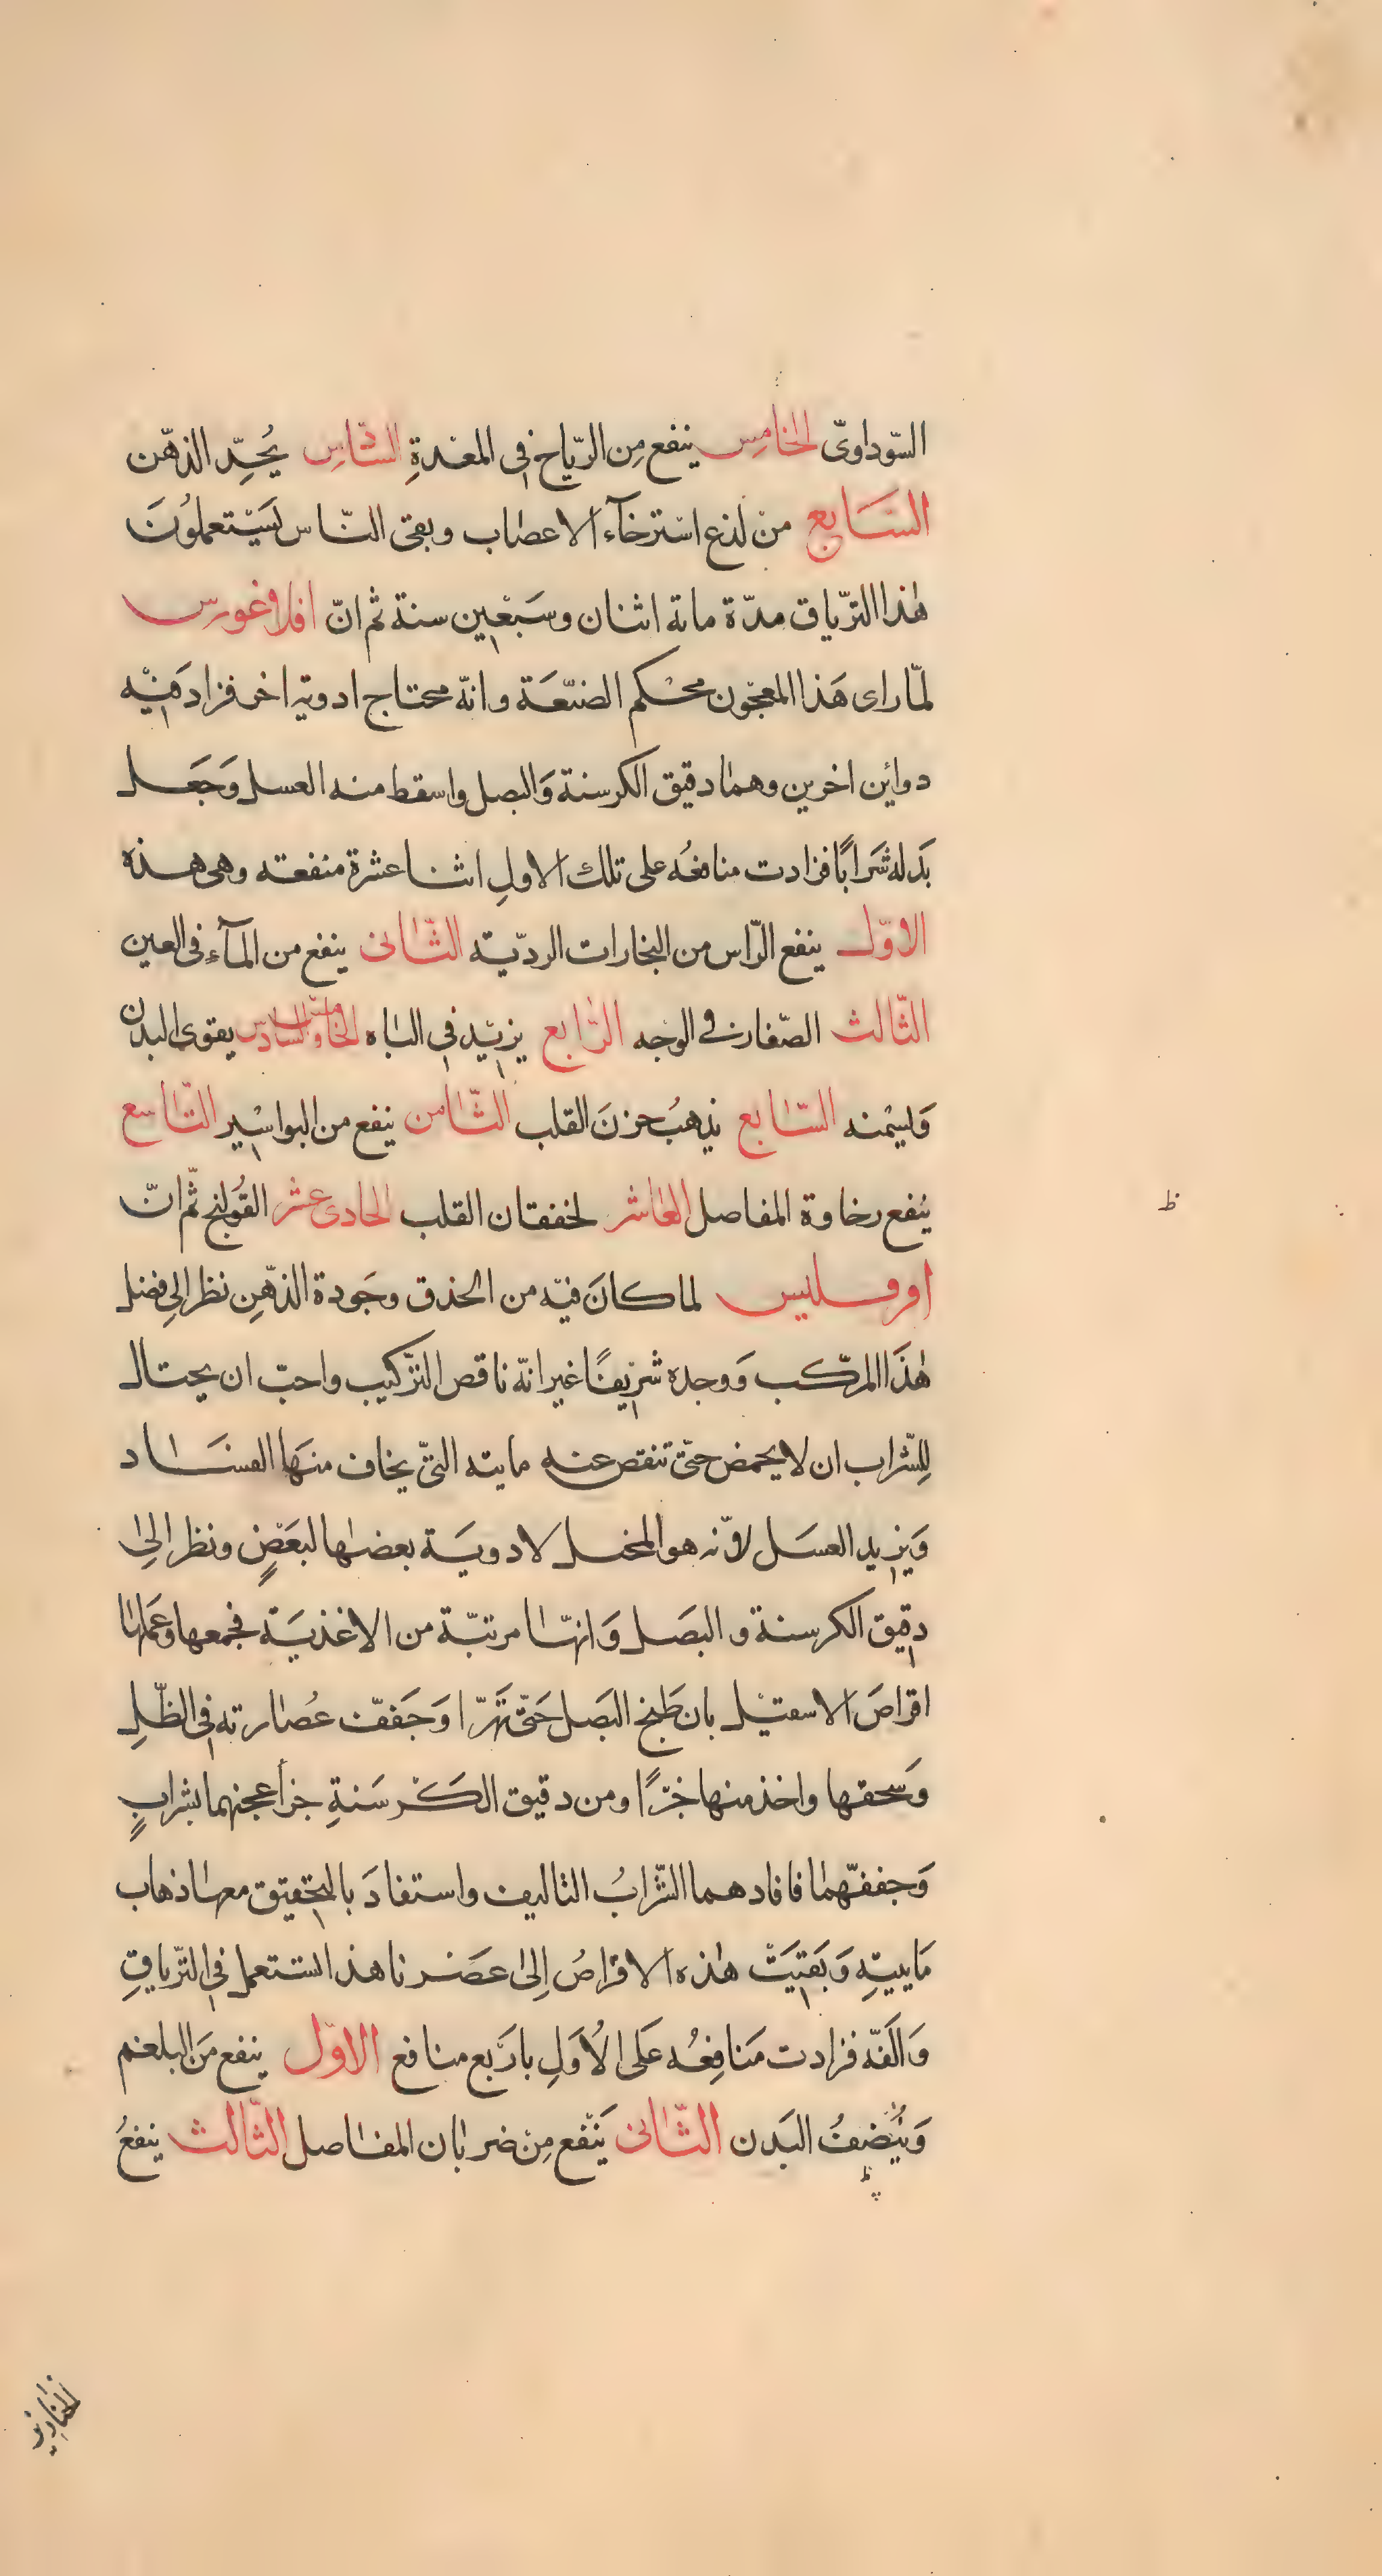 السّوداوىّ الخامِس ينفع مِن الرّياح فى المعْدةِ السّادِس يُحِدِّ الذهّن
السَّابع من لذع اسْترخآء الاعصاب وبقى النّاس يَسْتعملُونَ
هٰذا الترّياق مدّة ماىة اثنان وسَبْعين سنة ثم انّ افلاغورس
لمّا راى هَذا المعجُون محْكم الصّنعَة وانّه محتاج ادويه اخر فزاد فيْه
دوائين اخرين وهمٰا دقيق الكرسنة وَالبصل واسقط منه العسل وَجَعل
بَدله شرَابًا فزادت منافعُه على تلك الاولِ اثنا عشرة منفعته وهى هذه
الاوّل ينفع الرّاس من البخارات الرديّته الثّانى ينفع من المآء فى العين
الثّالث الصّفار فى الوجه الرّابع يزيْد فى البٰاه الخامسّ والسّادس يقوى البدن
وَليسْمنه السّابع يذهبُ حزنَ القلب الثّامن ينفع من البواسْير التّاسع
يُنفع رخاوة المفاصل العٰاشر لخفقان القلب الحادى عشر القُولنج ثمّ انّ
اورقليس لما كانَ فيْه من الحذق وجَودة الذّهِن نظر الِى فضل
هٰذَا المركّب وَوجده شريفًا غير انّه ناقص الترّكيب واحبّ ان يحتال
لِلشّراب ان لا يحمض حتّى تنقص عنه مايته التىّ يخاف منهَا الفسَاد
وَيزيد العسَل لانّه هو المخل لادويَة بعضٰها لبعَضٍ ونظر الِىٰ
دقيق الكرسنة و البصَل وَانهّا مرتبّة من الاغذيَة فجمعها وعَملهٰا
اقراصَ الاسقيْل بان طَبخ البَصل حَتّى تَهَرّا وَجَففّت عُصٰارته فى الظّلِ
وَسحقها واخذ منها جُزًا ومن دقيق الكَرسَنةِ جزأ عجنهما بشرابٍ
وَجففهّمٰا فافادهما الشّرابُ التاليف واستفادَ بالتحقيق معهٰا ذهاب
مَاييتِه وَبَقيَتْ هٰذه الاقرٰاصُ اِلىٰ عصَرنا هذا تستعمل فى الترّياقِ
وَالَفّه فزادت مَنافِعُه عَلى الاُوَلِ بارَبع منافع الاوّل ينفع مَن البلغم
وَيُنْضفُ البَدن الثّانى يَنْفع مِنْ ضربٰان المفٰاصل الثّالث ينفعُ
ظ